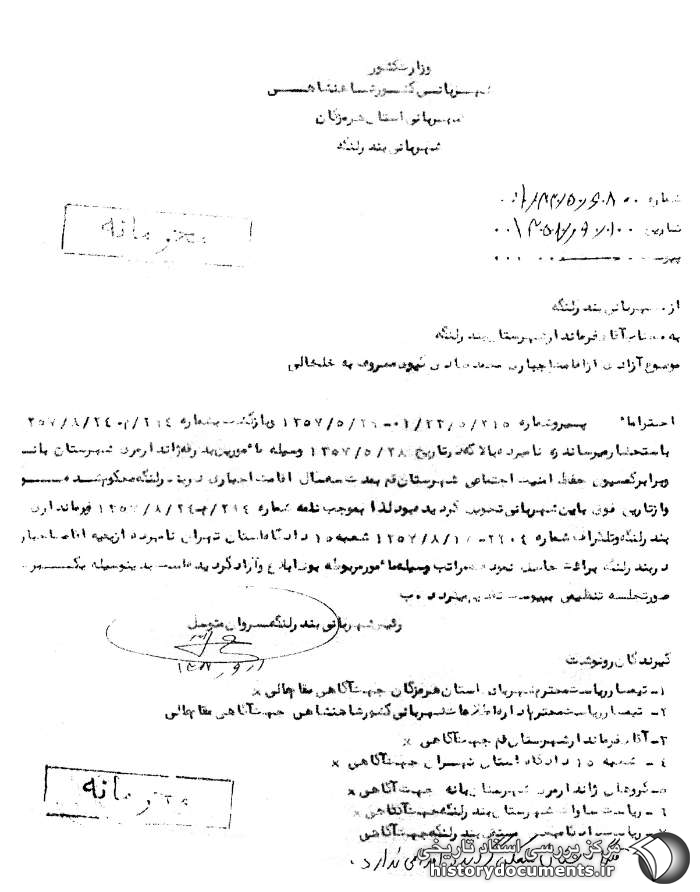 وزارت کشور
شهربانی کشور شاهنشاهی
شهربانی استان هرمزگان
شهربانی بندرلنگه
شماره
تاریخ
پیوست
محرمانه
از شهربانی بندرلنگه
به جناب آقای فرماندار شهرستان بندرلنگه
موضوع آزادی از اقامت اجباری محمد صادق معروف به خلخالی
احتراماً پیرو شماره ۰۱/۲۲/۵/۲۱۵ - ۱۳۵۷/۵/۲۹ و بازگشت بشماره ۲۱۴/م - ۲۵۷/۸/۲۴
باستحضار میرساند نامبرده بالا که در تاریخ ۱۳۵۷/۵/۲۸ وسیله مامورین بدرقه ژاندارمری شهرستان بانه
و برابر کمسیون حفظ امنیت اجتماعی شهرستان قم بمدت سه سال اقامت اجباری در بندرلنگه محکوم شده و
و از تاریخ فوق باین شهربانی تحویل گردیده بود لذا بموجب نامه شماره ۲۱۴/م - ۱۳۵۷/۸/۲۴ فرمانداری
بندرلنگه و تلگراف شماره ۲۲۰۴ - ۱۳۵۷/۸/۱۰ شعبه ۱۵ دادگاه استان تهران نامبرده از بقیه اقامت اجباری
در بندرلنگه برائت حاصل نموده مراتب وسیله مامور مربوطه بوی ابلاغ و آزاد گردیده است بدینوسیله یکبرگ
صورتجلسه تنظیمی بپیوست تقدیم میگردد
رئیس شهربانی بندرلنگه سروان متوسل
گیرندگان رونوشت
۱- تیمسار ریاست محترم شهربانی استان هرمزگان جهت آگاهی مقام عالی x
۲- تیمسار ریاست محترم اداره اطلاعات شهربانی کشور شاهنشاهی جهت آگاهی مقام عالی
۳- آقای فرماندار شهرستان قم جهت آگاهی x
۴- شعبه ۱۵ دادگاه استان تهران جهت آگاهی x
۵- گروهان ژاندارمری شهرستان بانه جهت آگاهی x
۶- ریاست ساواک شهرستان بندرلنگه جهت آگاهی x
ریاست بندرلنگه جهت آگاهی
محرمانه
ندارد
مرکز بررسی اسناد تاریخی
historydocuments.ir